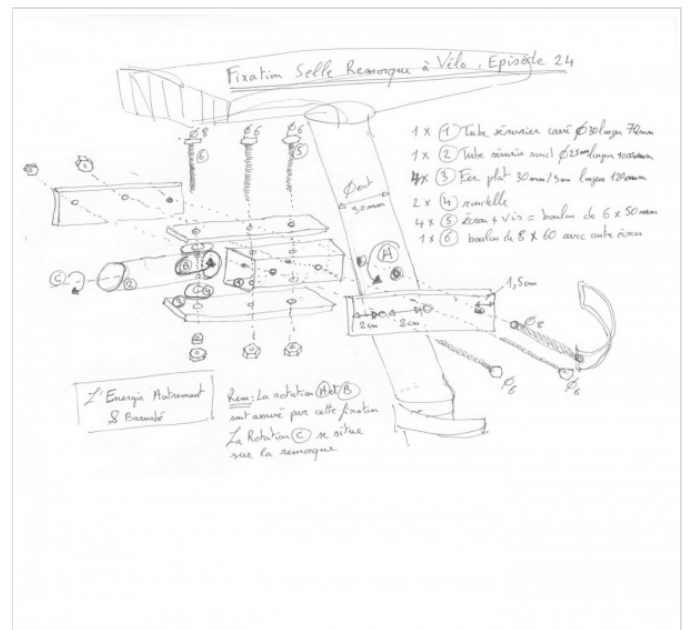 Fixation Selle Remorque à Vélo. Episode 24
1 x ① Tube serrurier carré Ø30 largeur 70mm
1 x ② Tube rond Ø25mm
4x ③ Fer plat 30mm/3mm 120mm
2 x ④ rondelle
4 x ⑤ écrou + vis = boulon de 6 x 50mm
1 x ⑥ boulon de 8 x 60 avec contre écrou
Ø8
Ø6
Ø6
⑥
⑤
Ø ext
30mm
Ⓐ
1,5cm
Ⓒ
②
Ⓑ
①
③
④
2cm
2cm
Ø8
Ø6
Ø6
L'Energie Autrement
& Barnabé
Rem: La rotation Ⓐ et Ⓑ
sont assuré par cette fixation
La Rotation Ⓒ se situe
sur la remorque